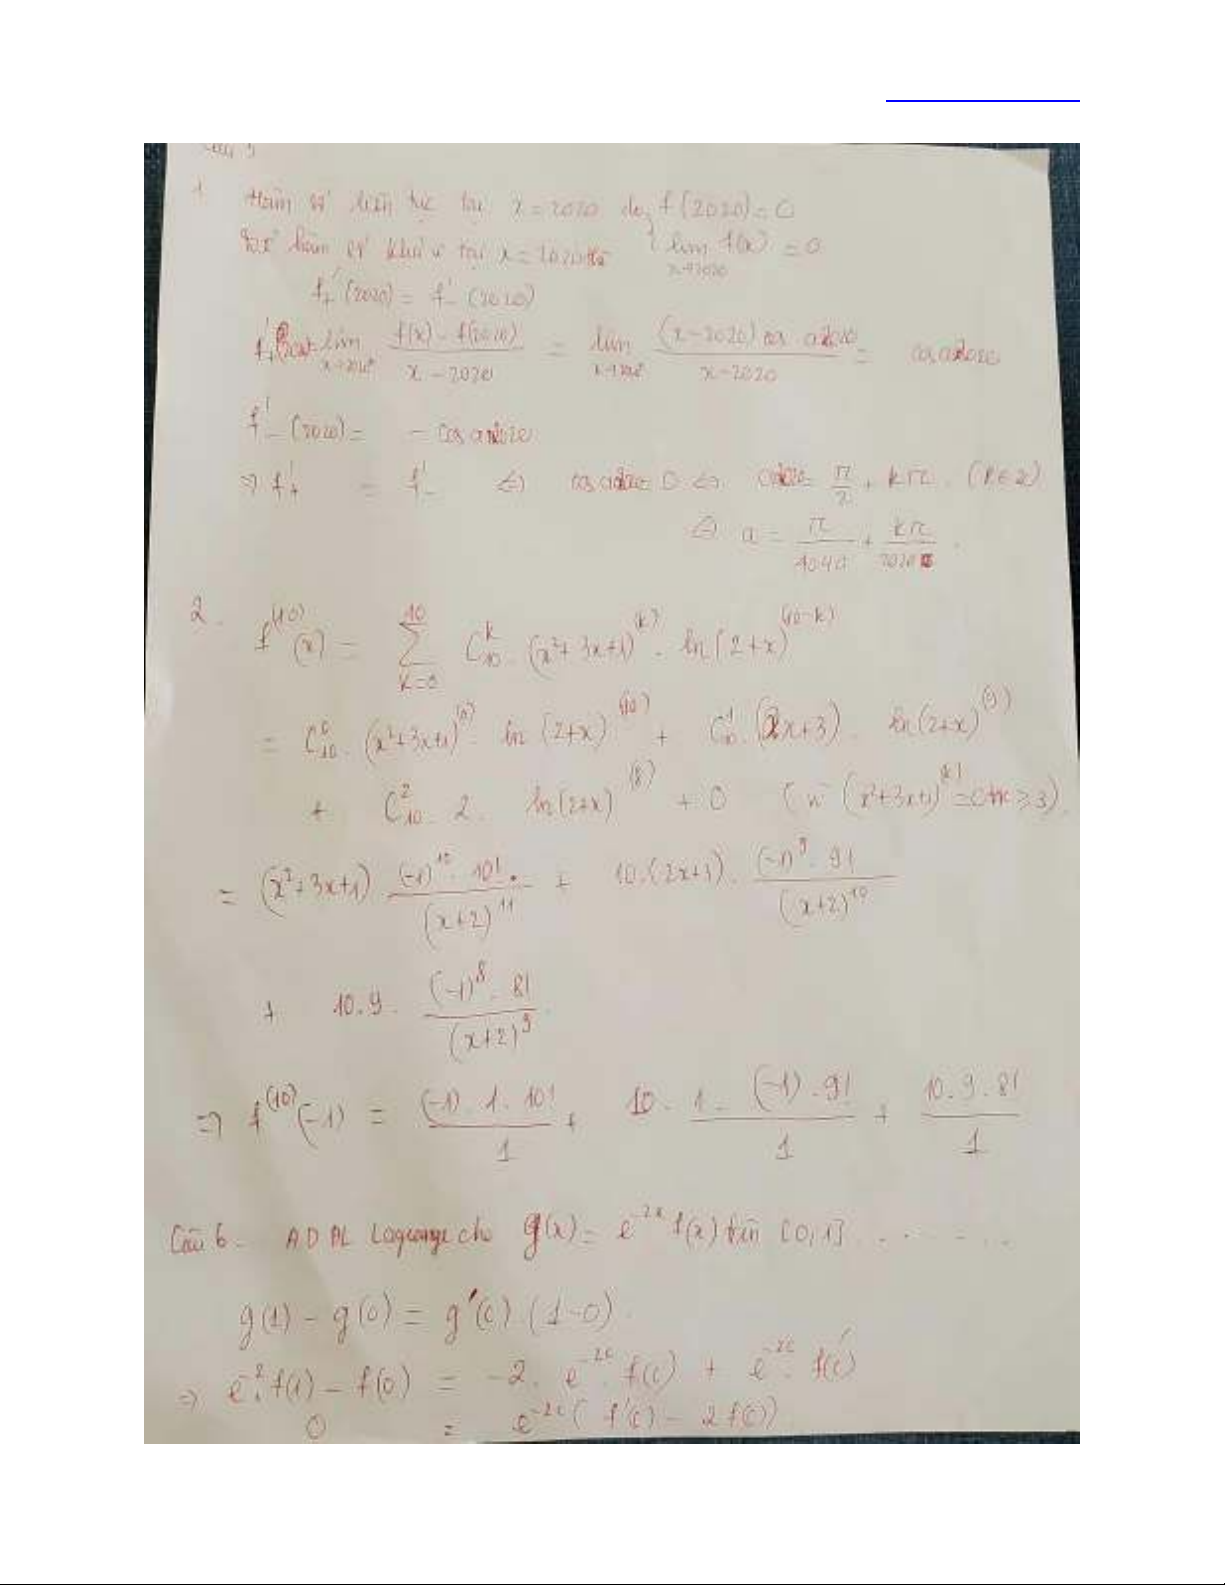 Câu 5
1. Hàm số liên tục tại x = 2020 do f(2020) = 0
hàm số khả vi tại x = 2020 lim f(x) = 0
x→2020
f'₊(2020) = f'₋(2020)
lim f(x) - f(2020) / x - 2020 = lim (x-2020) cos a2020 / x-2020 = cos a2020
f'₋(2020) = - cos a2020
⇒ f'₊ = f'₋ ⇔ cos a2020 = 0 ⇔ a2020 = π/2 + kπ. (k∈Z)
⇔ a = π/4040 + kπ/2020.
2. f⁽¹⁰⁾(x) = ∑_{k=0}^{10} C₁₀ᵏ . (x²+3x+1)⁽ᵏ⁾ . ln(2+x)⁽¹⁰⁻ᵏ⁾
= C₁₀⁰ . (x²+3x+1)⁽⁰⁾ . ln(2+x)⁽¹⁰⁾ + C₁₀¹ . (2x+3) . ln(2+x)⁽⁹⁾
+ C₁₀² . 2 . ln(2+x)⁽⁸⁾ + 0 (vì (x²+3x+1)⁽ᵏ⁾ = 0 ∀k ≥ 3)
= (x²+3x+1) . (-1)¹⁰ . 10! / (x+2)¹¹ + 10.(2x+3) . (-1)⁹ . 9! / (x+2)¹⁰
+ 10.9 . (-1)⁸ . 8! / (x+2)⁹.
⇒ f⁽¹⁰⁾(-1) = (-1) . 1 . 10! / 1 + 10 . 1 . (-1) . 9! / 1 + 10.9.8! / 1
Câu 6. ADĐL Lagrange cho g(x) = e⁻²ˣ f(x) trên [0,1] . . . . - . .
g(1) - g(0) = g'(c) (1-0).
⇒ e⁻² . f(1) - f(0) = -2 . e⁻²ᶜ . f(c) + e⁻²ᶜ . f'(c)
0 = e⁻²ᶜ ( f'(c) - 2f(c))